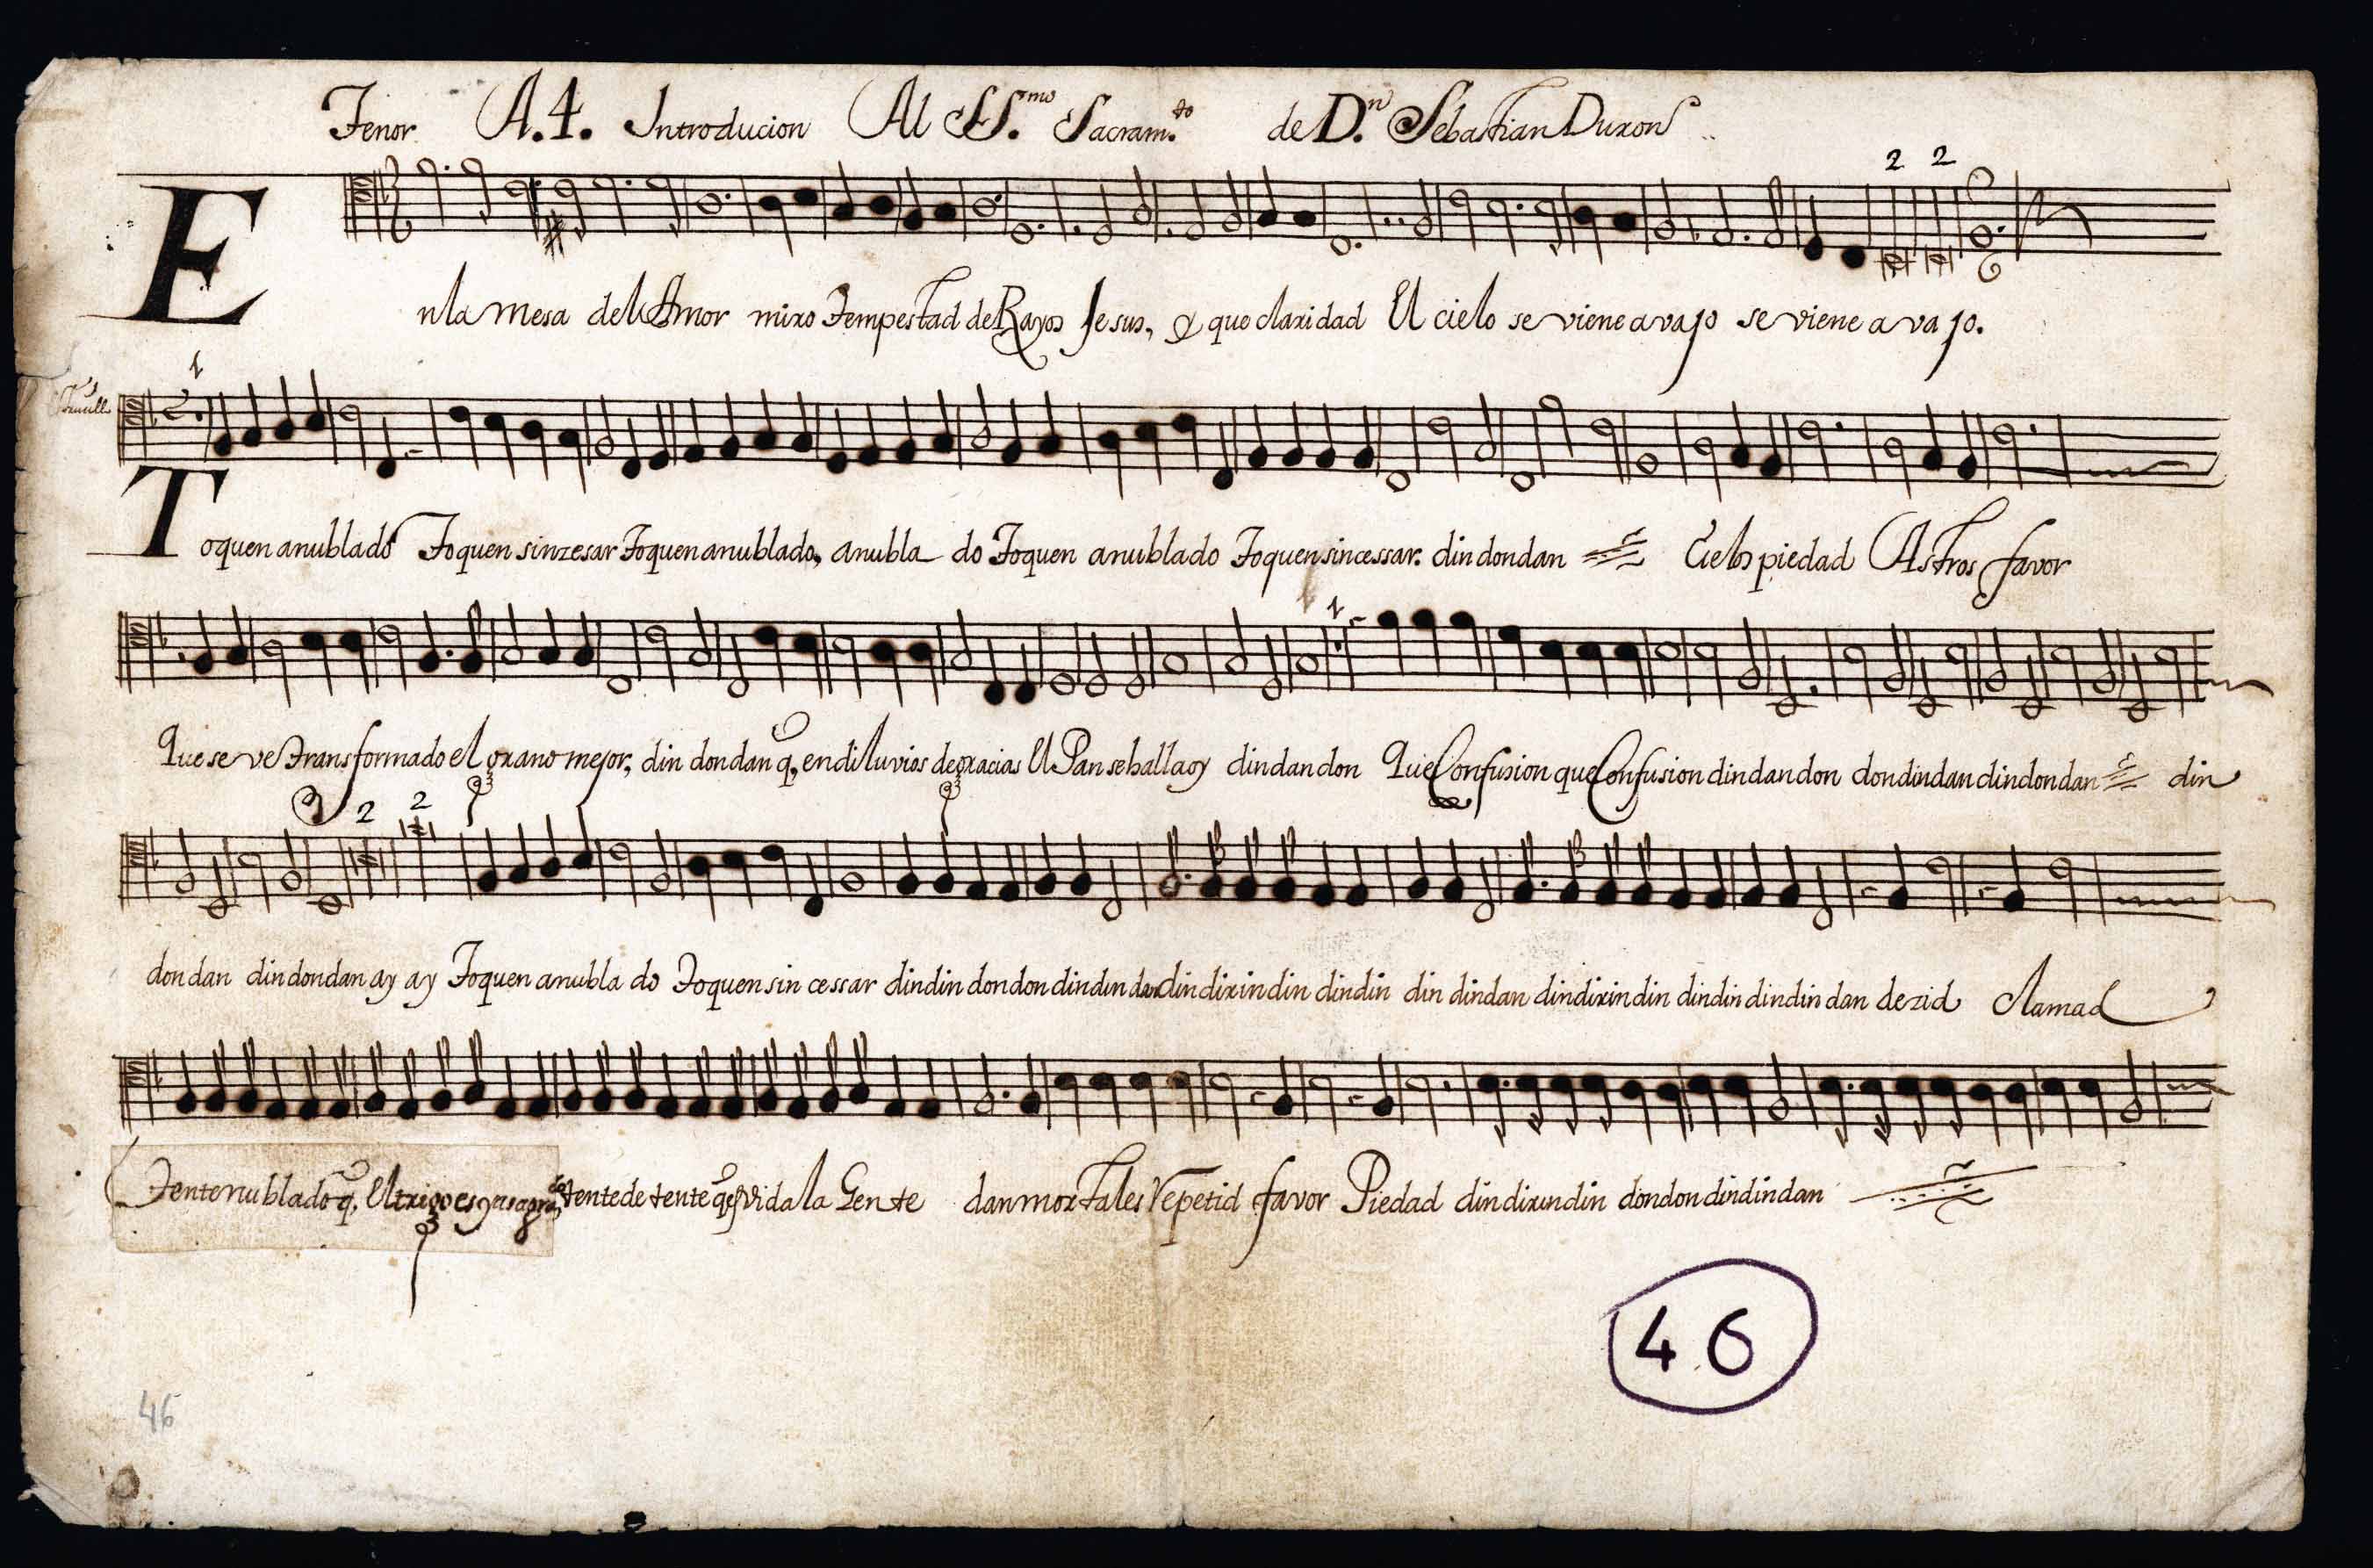 Tenor A.4. Introducion Al SS.mo Sacram.to de D.n Sebastian Duron
2 2
En la mesa del Amor miro tempestad de Rayos Jesus, y que claridad El cielo se viene avajo se viene avajo.
1
Toquen anublado Toquen sinzesar Toquen anublado, anubla do Toquen anublado Toquen sincessar. din don dan Cielos piedad Astros favor
1
Que se ve transformado el grano mejor, din don dan q, en diluvios de gracias El Pan se halla oy din dan don Que Confusion que Confusion din dan don don din dan din don dan din
2 2
don dan din don dan ay ay Toquen anubla do Toquen sin cessar din din don don din din dan din dirin din din din din din dan din dirin din din din din din dan dezid clamad
Tente nublado q, El trigo es tente de tente q, es vida la Gente dan mortales repetid favor Piedad din dirin din don don din din dan
46
46